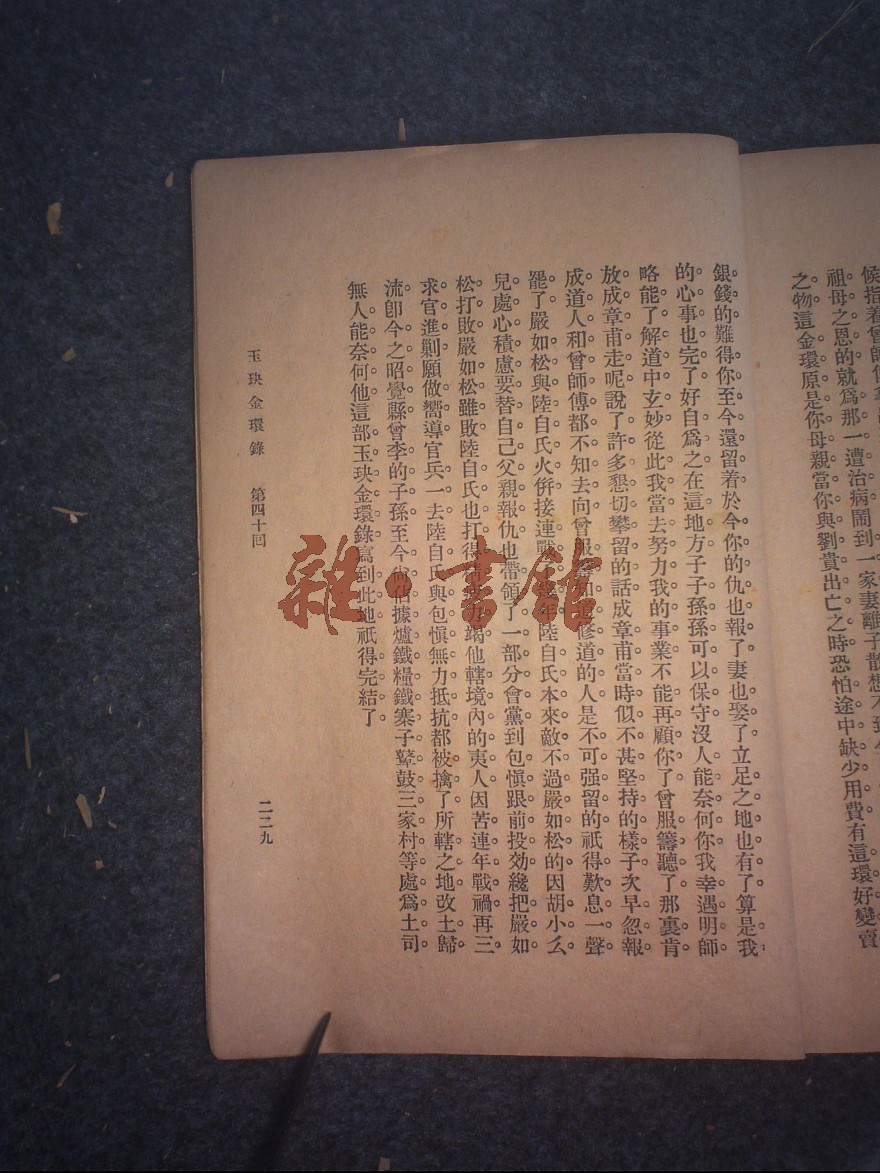 候指着曾師傅
祖母之恩的就爲那一遭治病鬧到一家妻離子散想不到今
之物。這金環原是你母親當你與劉貴出亡之時恐怕途中缺少用費有這環好變賣
銀錢的。難得你至今還留着。於今你的仇也報了。妻也娶了。立足之地也有了。算是我
的心事也完了。好自爲之。在這地方子子孫孫可以保守。沒人能奈何你。我幸遇明師。
略能了解道中玄妙。從此我當去努力我的事業。不能再顧你了。曾服籌聽了。那裏肯
放成章甫走呢。說了許多懇切攀留的話。成章甫當時似不甚堅持的樣子。次早忽報
成道人和曾師傅都不知去向。曾服籌知道修道的人。是不可强留的。祇得歎息一聲
罷了。嚴如松與陸自氏火併。接連戰了幾年。陸自氏本來敵不過嚴如松的。因胡小么
兒處心積慮要替自己父親報仇。也帶領了一部分會黨。到包愼跟前投効。纔把嚴如
松打敗。嚴如松雖敗。陸自氏也打得精疲力竭。他轄境內的夷人。因苦連年戰禍。再三
求官進剿。願做嚮導。官兵一去。陸自氏與包愼無力抵抗。都被擒了。所轄之地。改土歸
流。卽今之昭覺縣。曾李的子孫。至今尙佔據爐鐵糧鐵寨子鼕鼓三家村等處爲土司。
無人能奈何他。這部玉玦金環錄。寫到此地。祇得完結了。
玉玦金環錄 第四十回 二二九
雜·書館